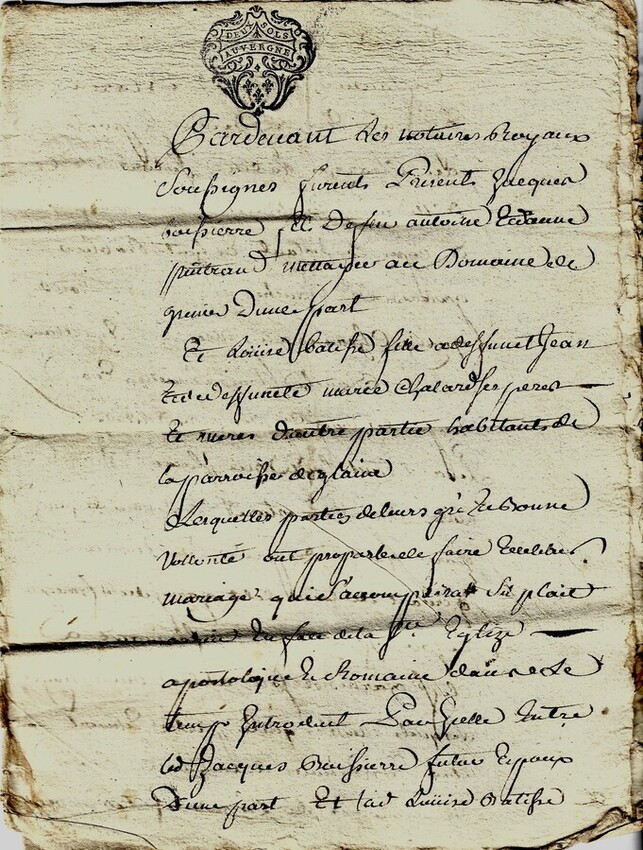 DEUX SOLS
AUVERGNE
Pardevant les notaires Royaux
Soussignes furent Present Jacques
boissierre fils De feu antoine Et anne
mettayer au Domaine de
Dune part
Et Louise batisse fille a deffunct Jean
Et a deffuncte marie Chalard ses peres
Et meres dautre partie habitants de
la parroisse de glaine
Lesquelles parties de leurs gré Et Bonne
Vollonté ont proparle de faire Et celebrer
mariage qui s'accomplirat Sil plait
En face de la Ste Eglize
apostolique Et Romaine dans le
temps Entroduit Par Icelle Entre
led Jacques Boissierre futur Epoux
Dune part Et lad Louise Batisse